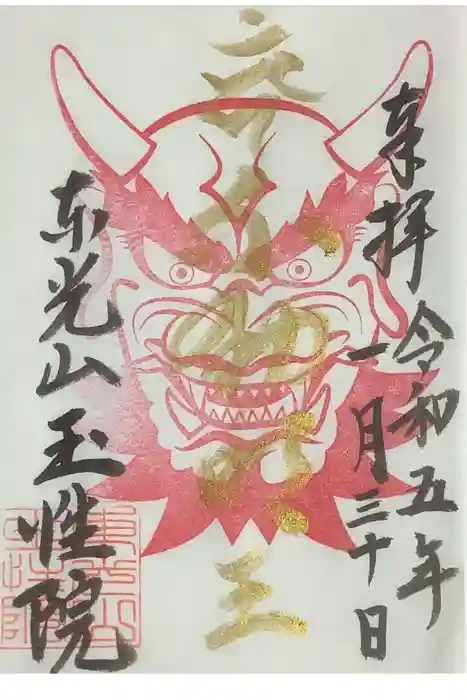 奉拝
令和五年
一月三十日
明王
東光山玉性院